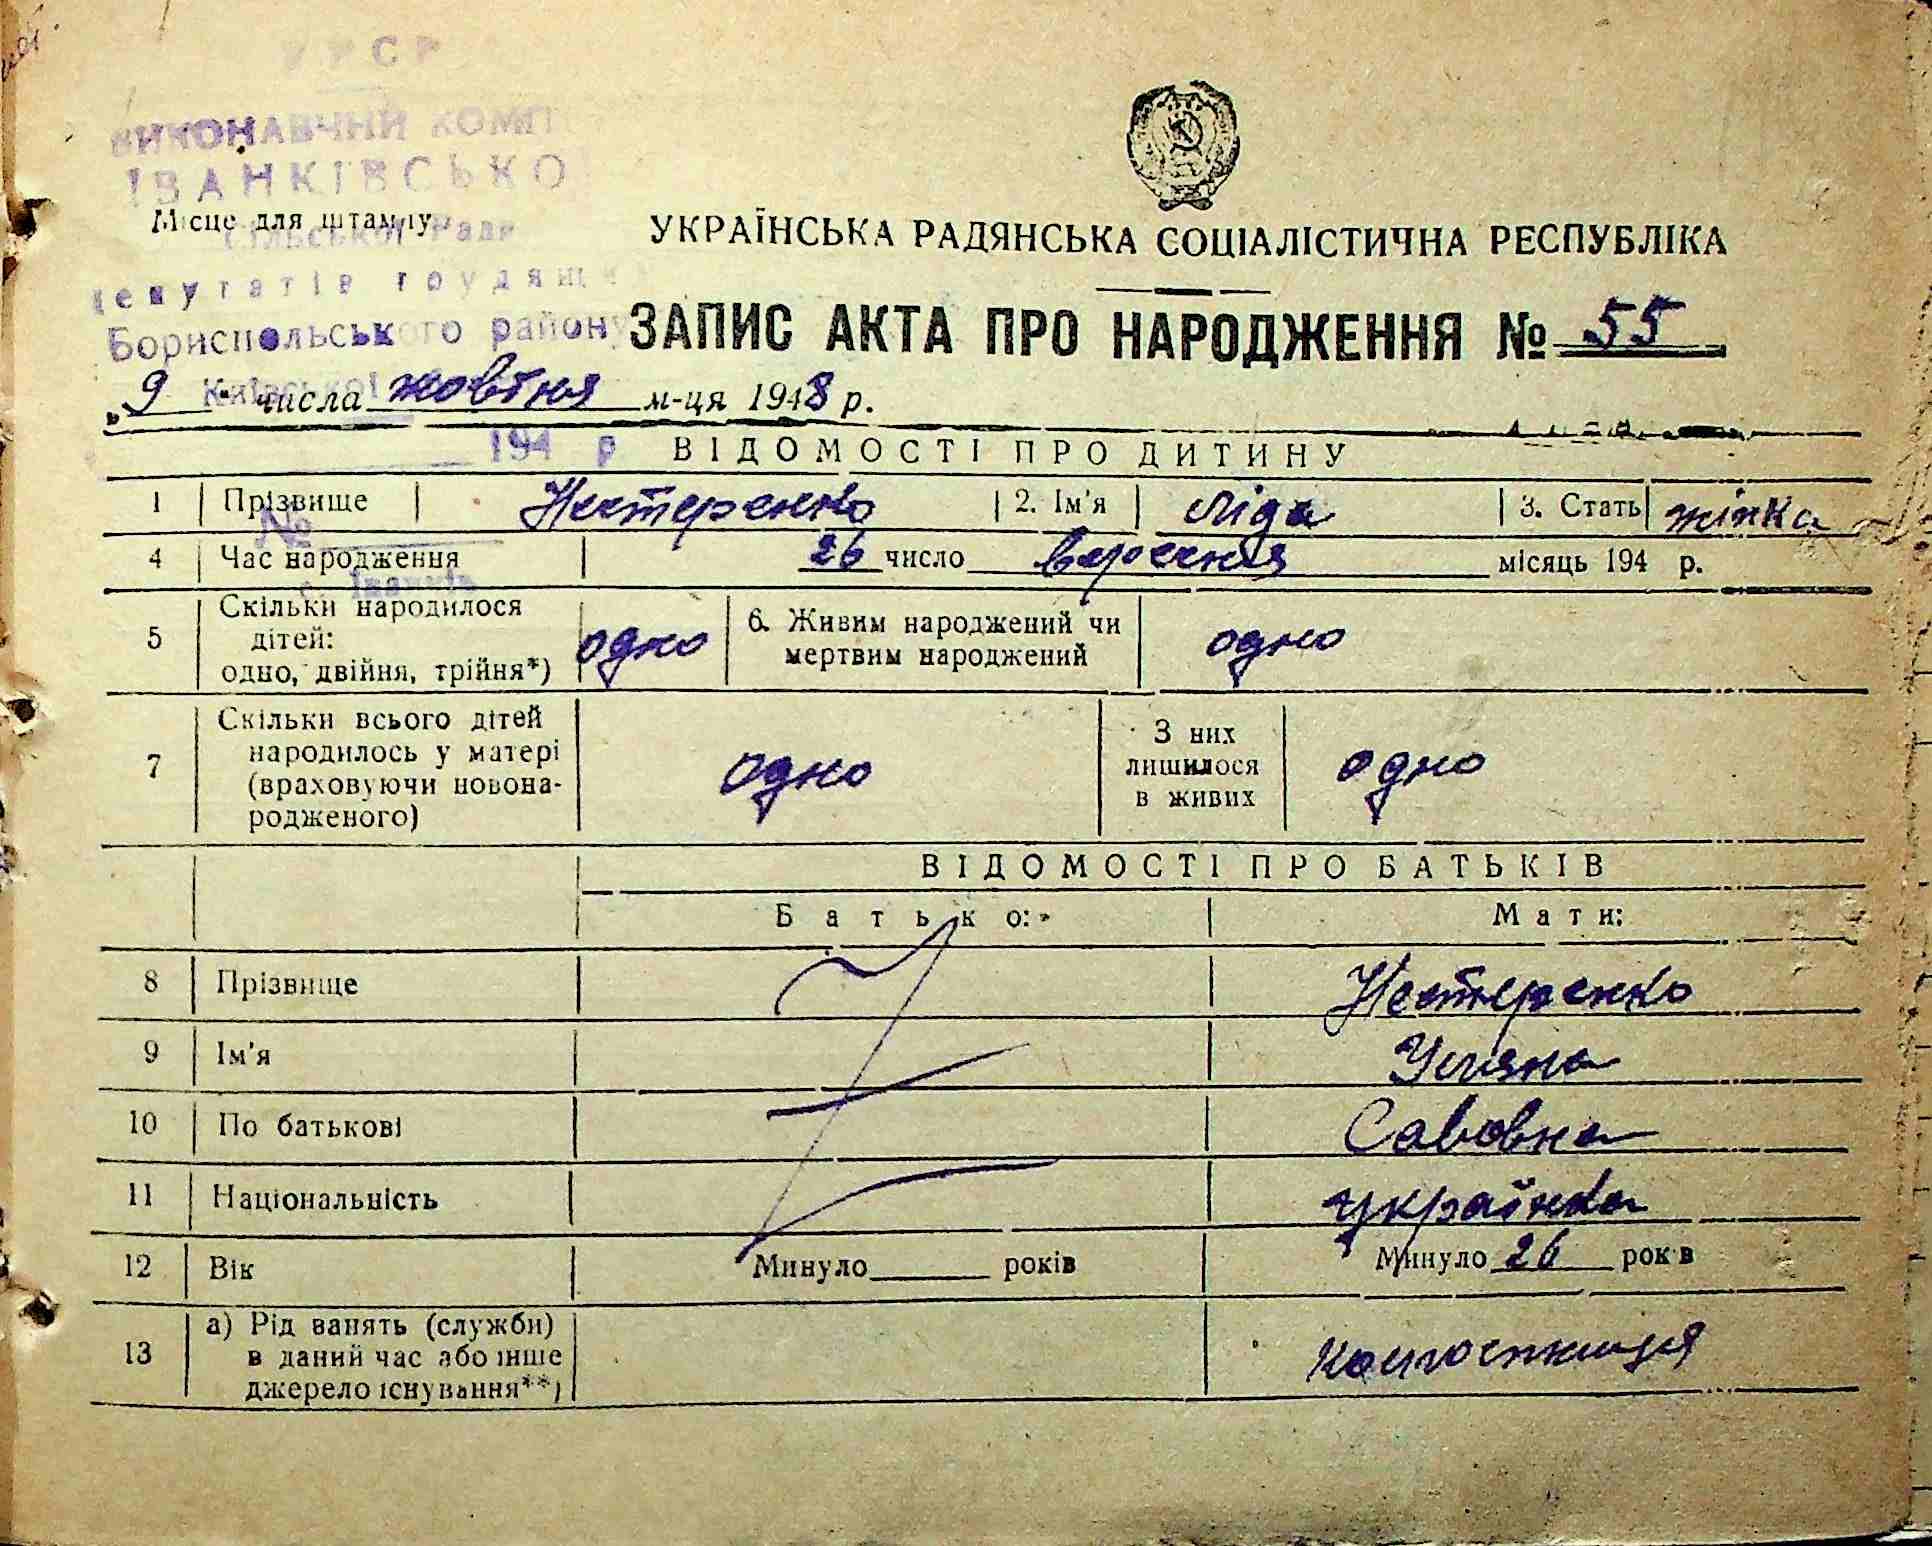 УРСР
ВИКОНАВЧИЙ КОМІТ
ІВАНКІВСЬКО
Сільської Ради
Місце для штампу
депутатів трудящ
Бориспольського району
Київської
УКРАЇНСЬКА РАДЯНСЬКА СОЦІАЛІСТИЧНА РЕСПУБЛІКА
ЗАПИС АКТА ПРО НАРОДЖЕННЯ № 55
„9" числа жовтня м-ця 1948 р.
194 р
ВІДОМОСТІ ПРО ДИТИНУ
1 Прізвище Нестеренко 2. Ім'я Ліда 3. Стать жінка
№
4 Час народження 26 число вересня місяць 194 р.
с. Іванків
5 Скільки народилося дітей: одно, двійня, трійня*) одно 6. Живим народжений чи мертвим народжений одно
7 Скільки всього дітей народилось у матері (враховуючи новонародженого) одно З них лишилося в живих одно
ВІДОМОСТІ ПРО БАТЬКІВ
Батько: Мати:
8 Прізвище Нестеренко
9 Ім'я Уляна
10 По батькові Савовна
11 Національність українка
12 Вік Минуло років Минуло 26 років
13 а) Рід занять (служби) в даний час або інше джерело існування**) колгоспниця